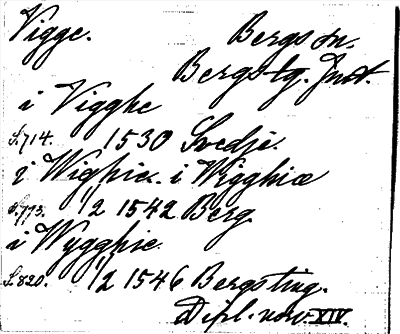 Vigge. Bergs sn.
Bergs tg. Jmt.
i Vigghe
S.714. 1530 Svedje.
i Wighie. i Wigghiæ
S.773. 12/11 1542 Berg
i Wygghie
S.820. 12/11 1546 Bergsting.
Dipl. norv. XIV.